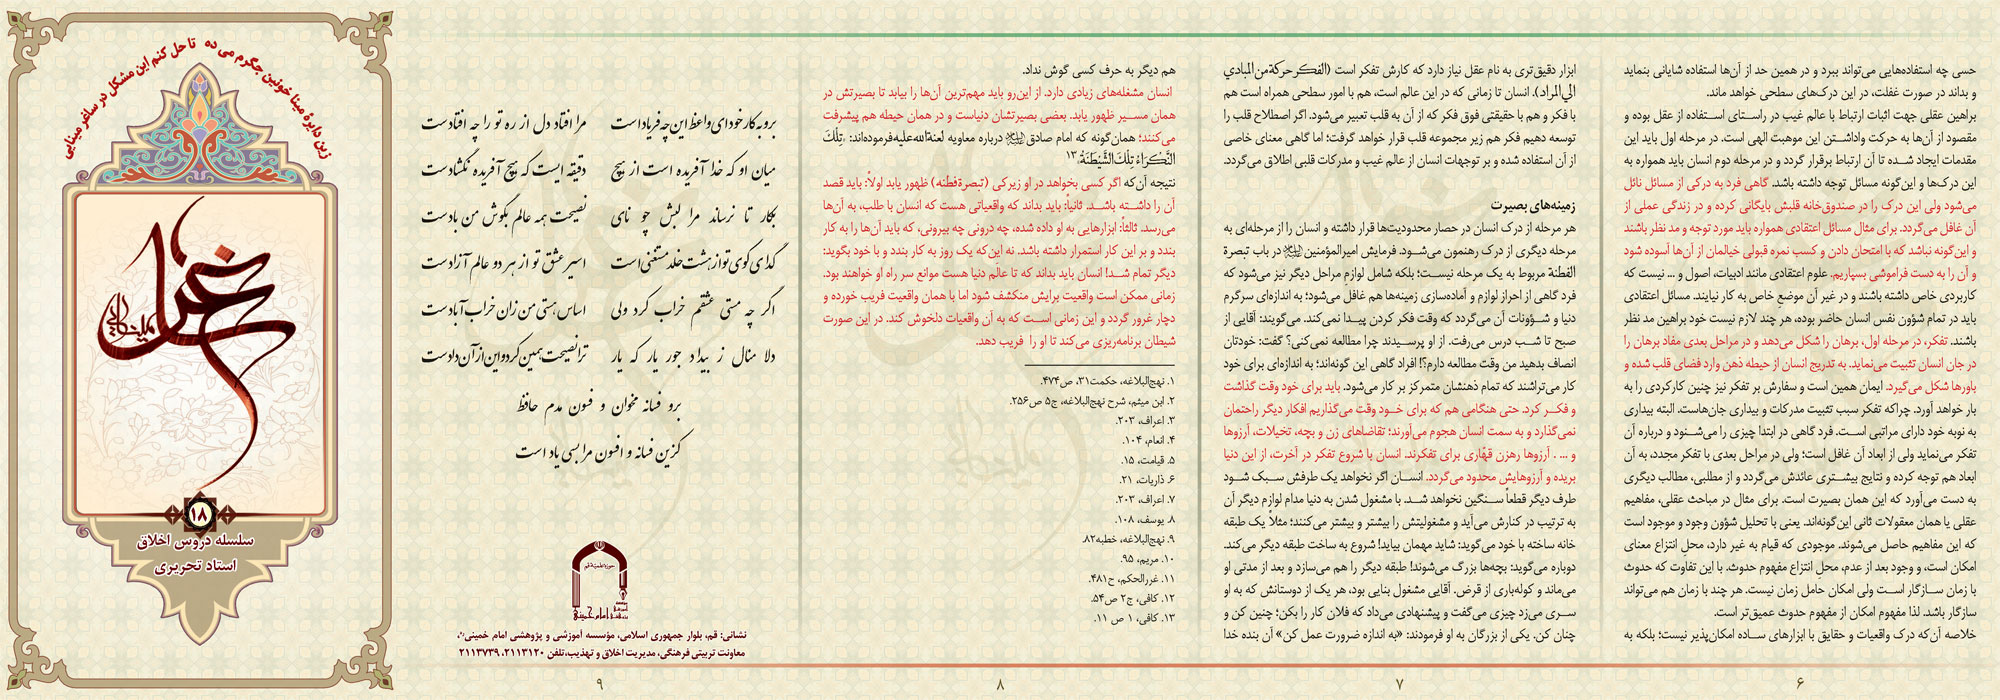 حسی چه استفاده‌هایی می‌تواند ببرد و در همین حد از آن‌ها استفاده شایانی بنماید
و بداند در صورت غفلت، در این درک‌های سطحی خواهد ماند.
براهین عقلی جهت اثبات ارتباط با عالم غیب در راستای استفاده از عقل بوده و
مقصود از آن‌ها به حرکت واداشتن این موهبت الهی است. در مرحله اول باید این
مقدمات ایجاد شده تا آن ارتباط برقرار گردد و در مرحله دوم انسان باید همواره به
این درک‌ها و این‌گونه مسائل توجه داشته باشد. گاهی فرد به درکی از مسائل نائل
می‌شود ولی این درک را در صندوق‌خانه قلبش بایگانی کرده و در زندگی عملی از
آن غافل می‌گردد. برای مثال مسائل اعتقادی همواره باید مورد توجه و مد نظر باشند
و این‌گونه نباشد که با امتحان دادن و کسب نمره قبولی خیالمان از آن‌ها آسوده شود
و آن را به دست فراموشی بسپاریم. علوم اعتقادی مانند ادبیات، اصول و ... نیست که
کاربردی خاص داشته باشند و در غیر آن موضع خاص به کار نیایند. مسائل اعتقادی
باید در تمام شؤون نفس انسان حاضر بوده، هر چند لازم نیست خود براهین مد نظر
باشند. تفکر، در مرحله اول، برهان را شکل می‌دهد و در مراحل بعدی مفاد برهان را
در جان انسان تثبیت می‌نماید. به تدریج انسان از حیطه ذهن وارد فضای قلب شده و
باورها شکل می‌گیرد. ایمان همین است و سفارش بر تفکر نیز چنین کارکردی را به
بار خواهد آورد. چراکه تفکر سبب تثبیت مدرکات و بیداری جان‌هاست. البته بیداری
به نوبه خود دارای مراتبی است. فرد گاهی در ابتدا چیزی را می‌شنود و درباره آن
تفکر می‌نماید ولی از ابعاد آن غافل است؛ ولی در مراحل بعدی با تفکر مجدد، به آن
ابعاد هم توجه کرده و نتایج بیشتری عائدش می‌گردد و از مطلبی، مطالب دیگری
به دست می‌آورد که این همان بصیرت است. برای مثال در مباحث عقلی، مفاهیم
عقلی یا همان معقولات ثانی این‌گونه‌اند. یعنی با تحلیل شؤون وجود و موجود است
که این مفاهیم حاصل می‌شوند. موجودی که قیام به غیر دارد، محل انتزاع معنای
امکان است، و وجود بعد از عدم، محل انتزاع مفهوم حدوث. با این تفاوت که حدوث
با زمان سازگار است ولی امکان حامل زمان نیست، هر چند با زمان هم می‌تواند
سازگار باشد. لذا مفهوم امکان از مفهوم حدوث عمیق‌تر است.
خلاصه آن‌که درک واقعیات و حقایق با ابزارهای ساده امکان‌پذیر نیست؛ بلکه به
۶
ابزار دقیق‌تری به نام عقل نیاز دارد که کارش تفکر است (الفکر حرکة من المبادي
الي المراد). انسان تا زمانی که در این عالم است، هم با امور سطحی همراه است هم
با فکر و هم با حقیقتی فوق فکر که از آن به قلب تعبیر می‌شود. اگر اصطلاح قلب را
توسعه دهیم فکر هم زیر مجموعه قلب قرار خواهد گرفت؛ اما گاهی معنای خاصی
از آن استفاده شده و بر توجهات انسان از عالم غیب و مدرکات قلبی اطلاق می‌گردد.
زمینه‌های بصیرت
هر مرحله از درک انسان در حصار محدودیت‌ها قرار داشته و انسان را از مرحله‌ای به
مرحله دیگری از درک رهنمون می‌شود. فرمایش امیرالمؤمنین در باب تبصرة
الفطنة مربوط به یک مرحله نیست؛ بلکه شامل لوازم مراحل دیگر نیز می‌شود که
فرد گاهی از احراز لوازم و آماده‌سازی زمینه‌ها هم غافل می‌شود؛ به اندازه‌ای سرگرم
دنیا و شؤونات آن می‌گردد که وقت فکر کردن پیدا نمی‌کند. می‌گویند: آقایی از
صبح تا شب درس می‌رفت. از او پرسیدند چرا مطالعه نمی‌کنی؟ گفت: خودتان
انصاف بدهید من وقت مطالعه دارم؟! افراد گاهی این گونه‌اند؛ به اندازه‌ای برای خود
کار می‌تراشند که تمام ذهنشان متمرکز بر کار می‌شود. باید برای خود وقت گذاشت
و فکر کرد. حتی هنگامی هم که برای خود وقت می‌گذاریم افکار دیگر راحتمان
نمی‌گذارد و به سمت انسان هجوم می‌آورند؛ تقاضاهای زن و بچه، تخیلات، آرزوها
و ... . آرزوها رهزن قهّاری برای تفکرند. انسان با شروع تفکر در آخرت، از این دنیا
بریده و آرزوهایش محدود می‌گردد. انسان اگر نخواهد یک طرفش سبک شود
طرف دیگر قطعاً سنگین نخواهد شد. با مشغول شدن به دنیا مدام لوازم دیگر آن
به ترتیب در کنارش می‌آید و مشغولیتش را بیشتر و بیشتر می‌کنند؛ مثلاً یک طبقه
خانه ساخته با خود می‌گوید: شاید مهمان بیاید! شروع به ساخت طبقه دیگر می‌کند.
دوباره می‌گوید: بچه‌ها بزرگ می‌شوند! طبقه دیگر را هم می‌سازد و بعد از مدتی او
می‌ماند و کوله‌باری از قرض. آقایی مشغول بنایی بود، هر یک از دوستانش که به او
سری می‌زد چیزی می‌گفت و پیشنهادی می‌داد که فلان کار را بکن؛ چنین کن و
چنان کن. یکی از بزرگان به او فرمودند: «به اندازه ضرورت عمل کن» آن بنده خدا
۷
هم دیگر به حرف کسی گوش نداد.
انسان مشغله‌های زیادی دارد. از این‌رو باید مهم‌ترین آن‌ها را بیابد تا بصیرتش در
همان مسیر ظهور یابد. بعضی بصیرتشان دنیاست و در همان حیطه هم پیشرفت
می‌کنند؛ همان‌گونه که امام صادق درباره معاویه لعنة‌الله‌علیه فرموده‌اند: تِلْكَ
النَّكْرَاءُ تِلْكَ الشَّيْطَنَةُ.۱۳
نتیجه آن‌که اگر کسی بخواهد در او زیرکی (تبصرة فطنه) ظهور یابد اولاً: باید قصد
آن را داشته باشد. ثانیاً: باید بداند که واقعیاتی هست که انسان با طلب، به آن‌ها
می‌رسد. ثالثاً: ابزارهایی به او داده شده، چه درونی چه بیرونی، که باید آن‌ها را به کار
بندد و بر این کار استمرار داشته باشد. نه این‌که یک روز به کار بندد و با خود بگوید:
دیگر تمام شد! انسان باید بداند که تا عالم دنیا هست موانع سر راه او خواهند بود.
زمانی ممکن است واقعیت برایش منکشف شود اما با همان واقعیت فریب خورده و
دچار غرور گردد و این زمانی است که به آن واقعیات دلخوش کند. در این صورت
شیطان برنامه‌ریزی می‌کند تا او را فریب دهد.
۱. نهج‌البلاغه، حکمت۳۱، ص۴۷۴.
۲. ابن میثم، شرح نهج‌البلاغه، ج۵ ص۲۵۶
۳. اعراف، ۲۰۳.
۴. انعام، ۱۰۴.
۵. قیامت، ۱۵.
۶. ذاریات، ۲۱.
۷. اعراف، ۲۰۳.
۸. یوسف، ۱۰۸.
۹. نهج‌البلاغه، خطبه۸۲.
۱۰. مریم، ۹۵.
۱۱. غررالحکم، ح۴۸۱.
۱۲. کافی، ج۲ ص۵۴.
۱۳. کافی، ۱ ص ۱۱.
۸
برو به کار خود ای واعظ این چه فریاد است مرا افتاد دل از ره تو را چه افتادست
میان او که خدا آفریده است از هیچ دقیقه ایست که هیچ آفریده نگشادست
بکام تا نرساند مرا لبش چو نای نصیحت همه عالم بگوش من بادست
گدای کوی تو از هشت خلد مستغنی است اسیر عشق تو از هر دو عالم آزادست
اگر چه مستی عشقم خراب کرد ولی اساس هستی من زان خراب آبادست
دلا منال ز بیداد جور یار که یار ترا نصیحت همین کرد و این از آن دادست
برو فسانه مخوان و فسون مدم حافظ
کزین فسانه و افسون مرا بسی یاد است
حوزه علمیه قم
نشانی: قم، بلوار جمهوری اسلامی، مؤسسه آموزشی و پژوهشی امام خمینی
معاونت تربیتی فرهنگی، مدیریت اخلاق و تهذیب، تلفن ۲۱۱۳۱۲۰، ۲۱۱۳۷۳۹
۹
زین دایرهٔ مینا خونین جگرم می ده تا حل کنم این مشکل در ساغر مینایی
۱۸
سلسله دروس اخلاق
استاد تحریری